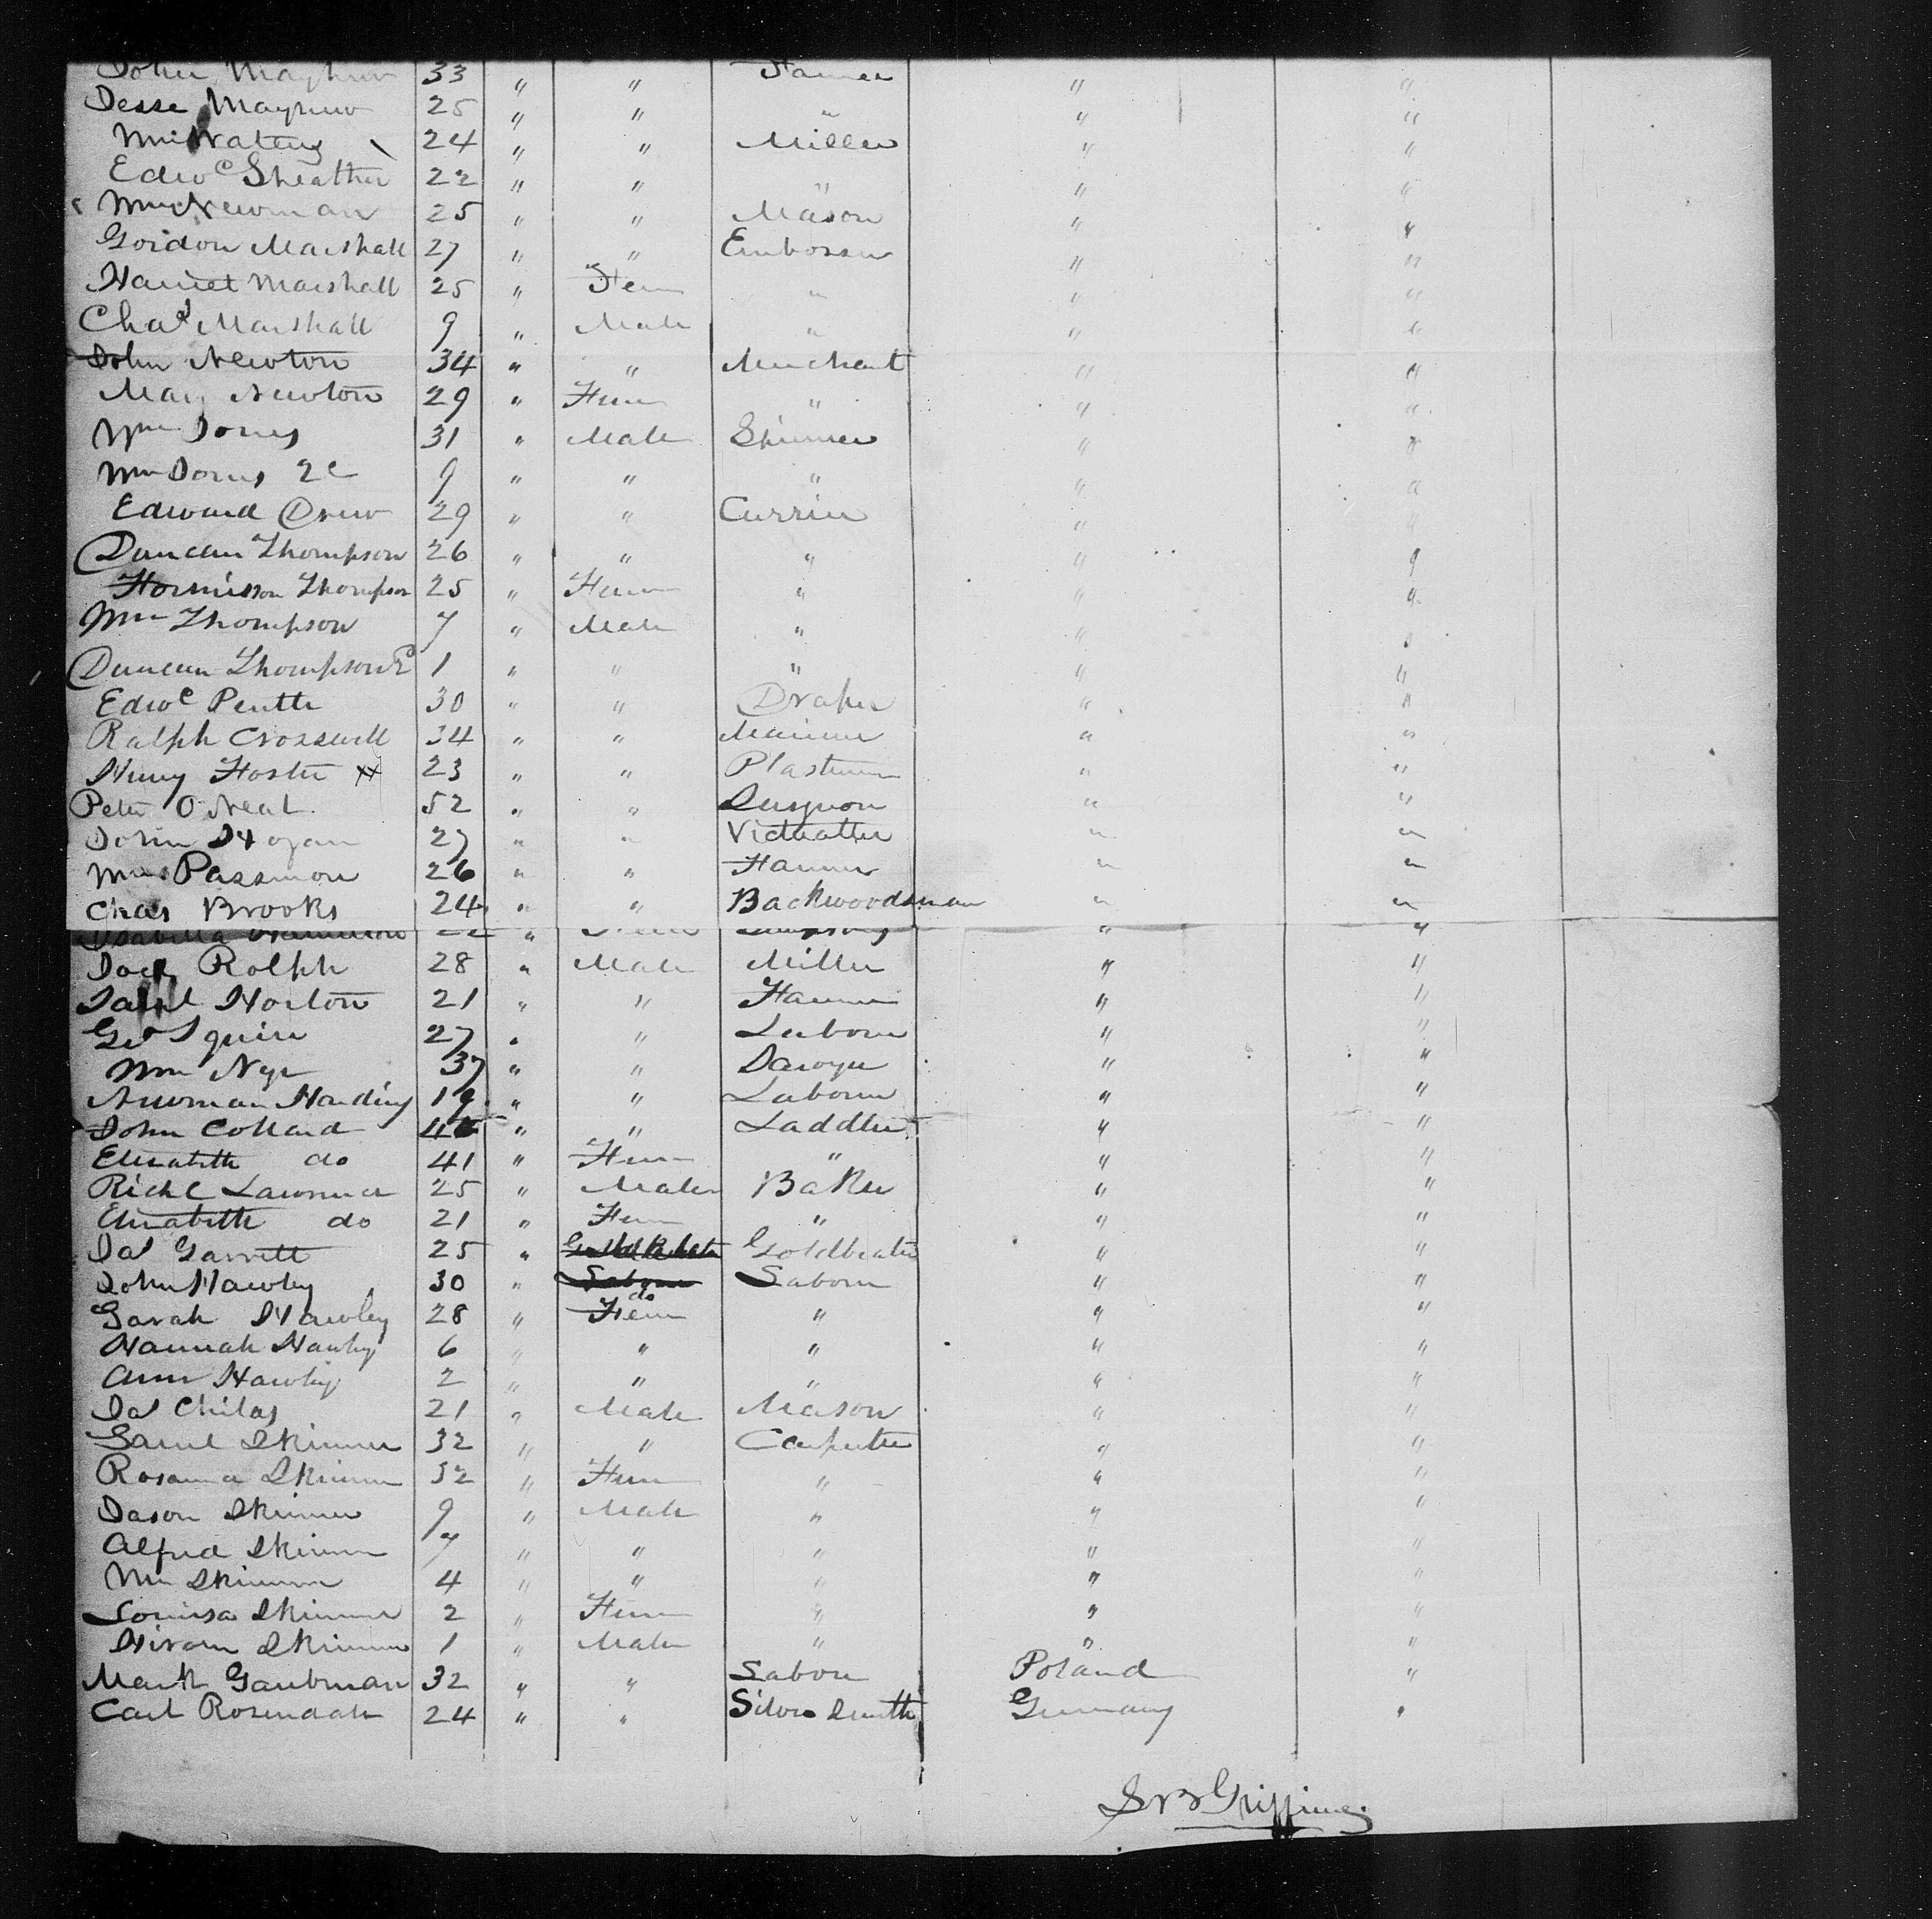 John Mayhew 33 " " Farmer " "
Jesse Mayhew 25 " " " " "
Wm Waters 24 " " Miller " "
Edwd Sheather 22 " " " " "
Wm Newman 25 " " Mason " "
Gordon Marshall 27 " " Embosser " "
Harriet Marshall 25 " Fem " " "
Chas Marshall 9 " Male " " "
John Newton 34 " " Merchant " "
Mary Newton 29 " Fem " " "
Wm Jones 31 " Male Skinner " "
Wm Jones 2d 9 " " " " "
Edward Drew 29 " " Currier " "
Duncan Thompson 26 " " " " "
Thompson 25 " Fem " " "
Wm Thompson 7 " Male " " "
Duncan Thompson 2d 1 " " " " "
Edwd 30 " " Draper " "
Ralph Crosswell 34 " " Mariner " "
Henry Foster 23 " " Plasterer " "
Peter O Neal 52 " " Surgeon " "
John Hogan 27 " " Victualler " "
Wm Passmore 26 " " Farmer " "
Chas Brooks 24 " " Backwoodsman " "
Isabella 22 " Fem " "
Rolph 28 " Male Miller " "
Saml Horton 21 " " Farmer " "
Geo Squire 27 " " Laborer " "
Wm Nye 37 " " Sawyer " "
Newman Harding 19 " " Laborer " "
John Collard " " Saddler " "
Elizabeth do 41 " Fem " " "
Richd Lawrence 25 " Male Baker " "
Elizabeth do 21 " Fem " " "
Jas Garrett 25 " Goldbeater " "
John Hawley 30 " do Laborer " "
Sarah Hawley 28 " Fem " " "
Hannah Hawley 6 " " " " "
Ann Hawley 2 " " " " "
Jas Childs 21 " Male Mason " "
Saml Skinner 32 " " Carpenter " "
Rosanna Skinner 32 " Fem " " "
Jason Skinner 9 " Male " " "
Alfred Skinner 7 " " " " "
Wm Skinner 4 " " " " "
Louisa Skinner 2 " Fem " " "
Hiram Skinner 1 " Male " " "
Mark Gaubman 32 " " Labore Poland "
Carl Rosendale 24 " " Silver Smith Germany "
S B Griffing